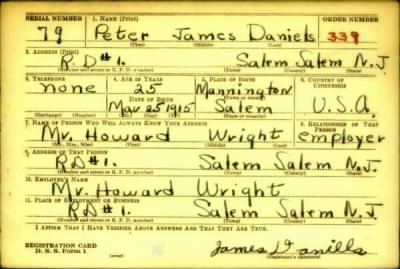 SERIAL NUMBER 1. NAME (Print) ORDER NUMBER
79 Peter James Daniels 339
(First) (Middle) (Last)
2. ADDRESS (Print)
R.D#1. Salem Salem N.J
(Number and street or R. F. D. number) (Town) (County) (State)
3. TELEPHONE 4. AGE IN YEARS 5. PLACE OF BIRTH 6. COUNTRY OF CITIZENSHIP
none 25 Mannington
DATE OF BIRTH (Town or county)
Mar 25 1915 Salem U.S.A.
(Exchange) (Number) (Mo.) (Day) (Yr.) (State or country)
7. NAME OF PERSON WHO WILL ALWAYS KNOW YOUR ADDRESS 8. RELATIONSHIP OF THAT PERSON
Mr. Howard Wright employer
(Mr., Mrs., Miss) (First) (Middle) (Last)
9. ADDRESS OF THAT PERSON
R.D#1. Salem Salem N.J.
(Number and street or R. F. D. number) (Town) (County) (State)
10. EMPLOYER'S NAME
Mr. Howard Wright
11. PLACE OF EMPLOYMENT OR BUSINESS
R.D#1. Salem Salem N.J.
(Number and street or R. F. D. number) (Town) (County) (State)
I AFFIRM THAT I HAVE VERIFIED ABOVE ANSWERS AND THAT THEY ARE TRUE.
REGISTRATION CARD
D. S. S. Form 1 (over) (Registrant's signature)